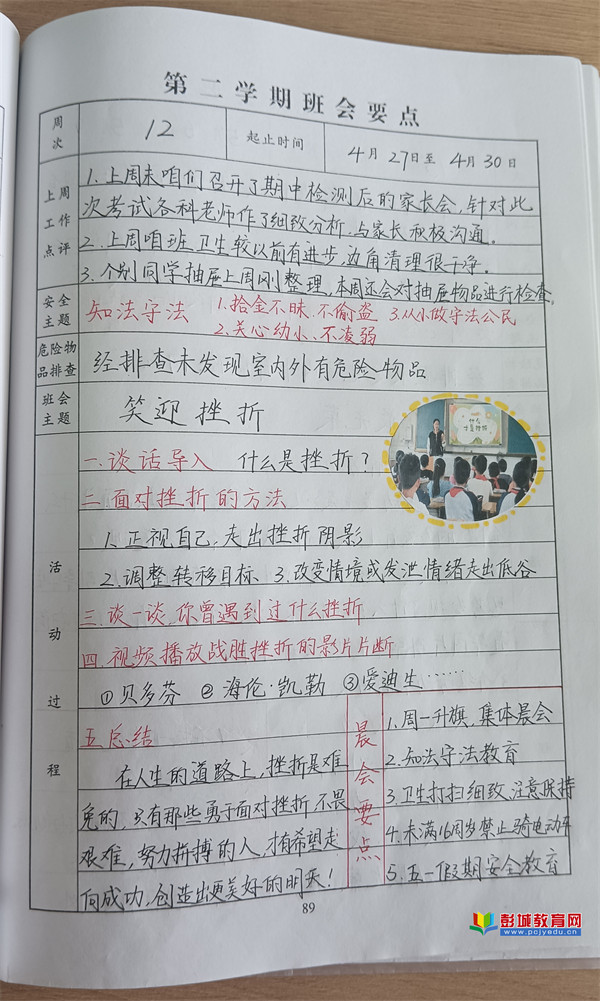 第二学期班会要点
周次 12 起止时间 4月27日至4月30日
上周工作点评
1.上周末咱们召开了期中检测后的家长会,针对此
次考试各科老师作了细致分析,与家长积极沟通。
2.上周咱班卫生较以前有进步,边角清理很干净。
3.个别同学抽屉上周刚整理,本周还会对抽屉物品进行检查。
安全主题 知法守法 1.拾金不昧、不偷盗 3.从小做守法公民
2.关心幼小、不凌弱
危险物品排查 经排查未发现室内外有危险物品
班会主题 笑迎挫折
活动过程
一.谈话导入 什么是挫折?
二.面对挫折的方法
1.正视自己,走出挫折阴影
2.调整转移目标 3.改变情境或发泄情绪走出低谷
三.谈一谈,你曾遇到过什么挫折
四.视频播放战胜挫折的影片片断
①贝多芬 ②海伦·凯勒 ③爱迪生……
五.总结
在人生的道路上,挫折是难
免的,只有那些勇于面对挫折不畏
艰难,努力拼搏的人,才有希望走
向成功,创造出更美好的明天!
晨会要点
1.周一升旗,集体晨会
2.知法守法教育
3.卫生打扫细致,注意保持
4.未满16周岁禁止骑电动车
5.五一假期安全教育
89
彭城教育网
www.pcjyedu.cn